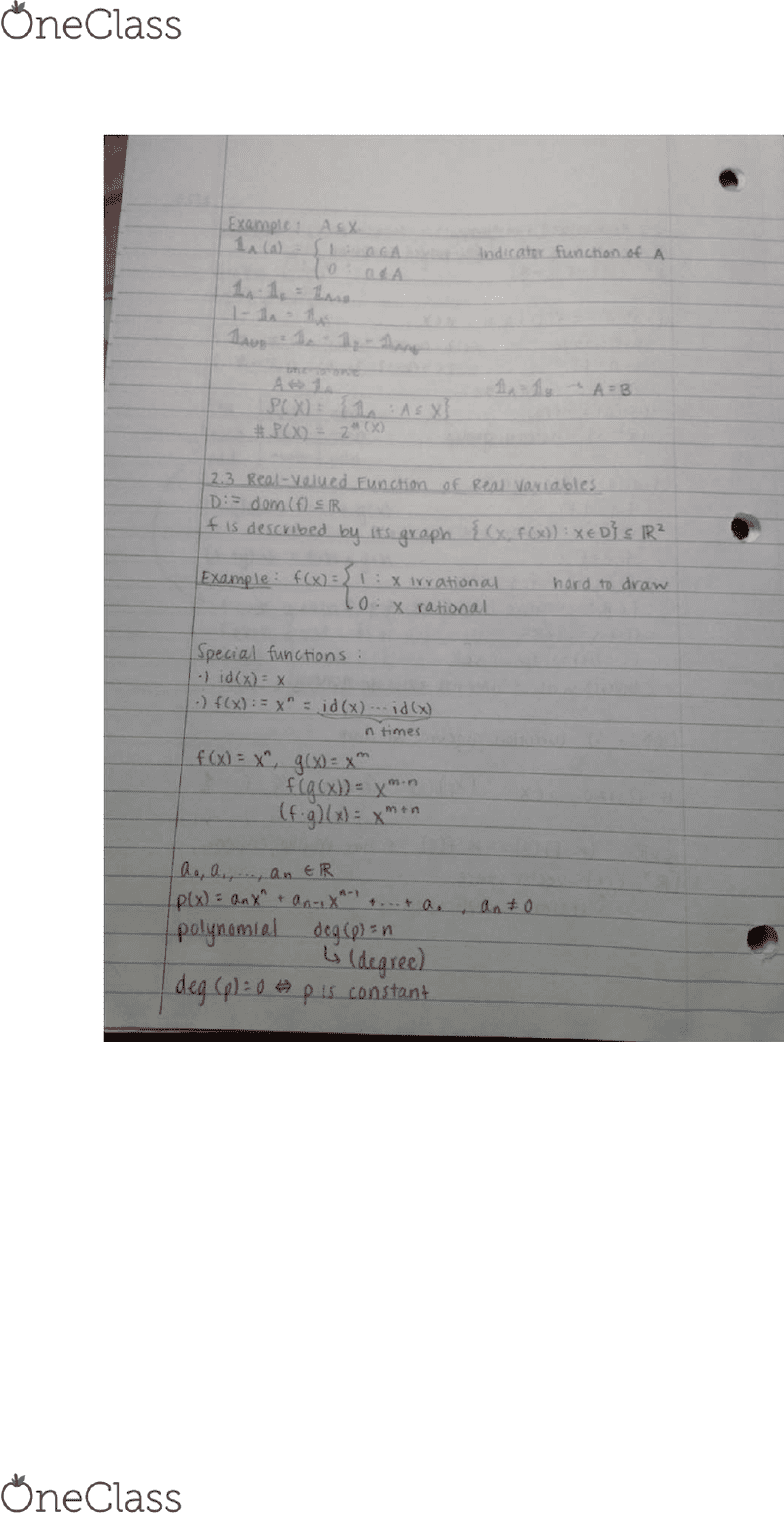 OneClass
Example: A ⊆ X
𝟙_A(a) = { 1 : a ∈ A    Indicator function of A
{ 0 : a ∉ A
𝟙_A · 𝟙_B = 𝟙_A∩B
1 - 𝟙_A =
𝟙_A∪B = 𝟙_A
one to one
A ⇔ 𝟙_A    𝟙_A = 𝟙_B    A = B
P(X) = {𝟙_A : A ⊆ X}
# P(X) = 2^#(X)
2.3 Real-Valued Function of Real Variables
D := dom(f) ⊆ ℝ
f is described by its graph {(x, f(x)) : x ∈ D} ⊆ ℝ²
Example: f(x) = { 1 : x irrational    hard to draw
{ 0 : x rational
Special functions :
·) id(x) = x
·) f(x) := xⁿ = id(x) ... id(x)
n times
f(x) = xⁿ, g(x) = xᵐ
f(g(x)) = x^m·n
(f·g)(x) = x^m+n
a₀, a₁, ..., aₙ ∈ ℝ
p(x) = aₙxⁿ + aₙ₋₁xⁿ⁻¹ + ... + a₀ , aₙ ≠ 0
polynomial    deg(p) = n
↳ (degree)
deg(p) = 0 ⇔ p is constant
OneClass